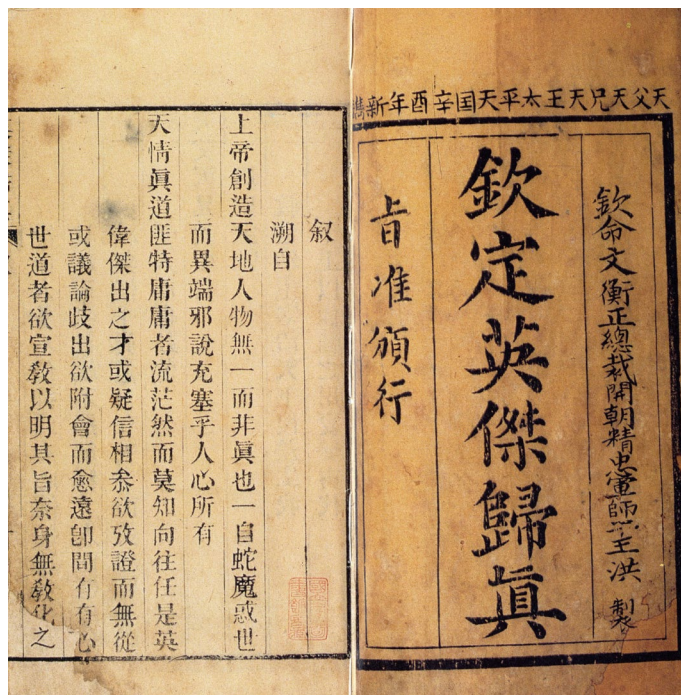 天父天兄天王太平天国辛酉年新鐫
欽命文衡正總裁開朝精忠軍師干王洪 製
欽定英傑歸眞
旨准頒行
叙
溯自
上帝創造天地人物無一而非眞也一自蛇魔惑世
而異端邪說充塞乎人心所有
天情眞道匪特庸庸者流茫然而莫知向往任是英
偉傑出之才或疑信相叅欲攷證而無從
或議論歧出欲附會而愈遠卽間有有心
世道者欲宣敎以明其旨奈身無敎化之